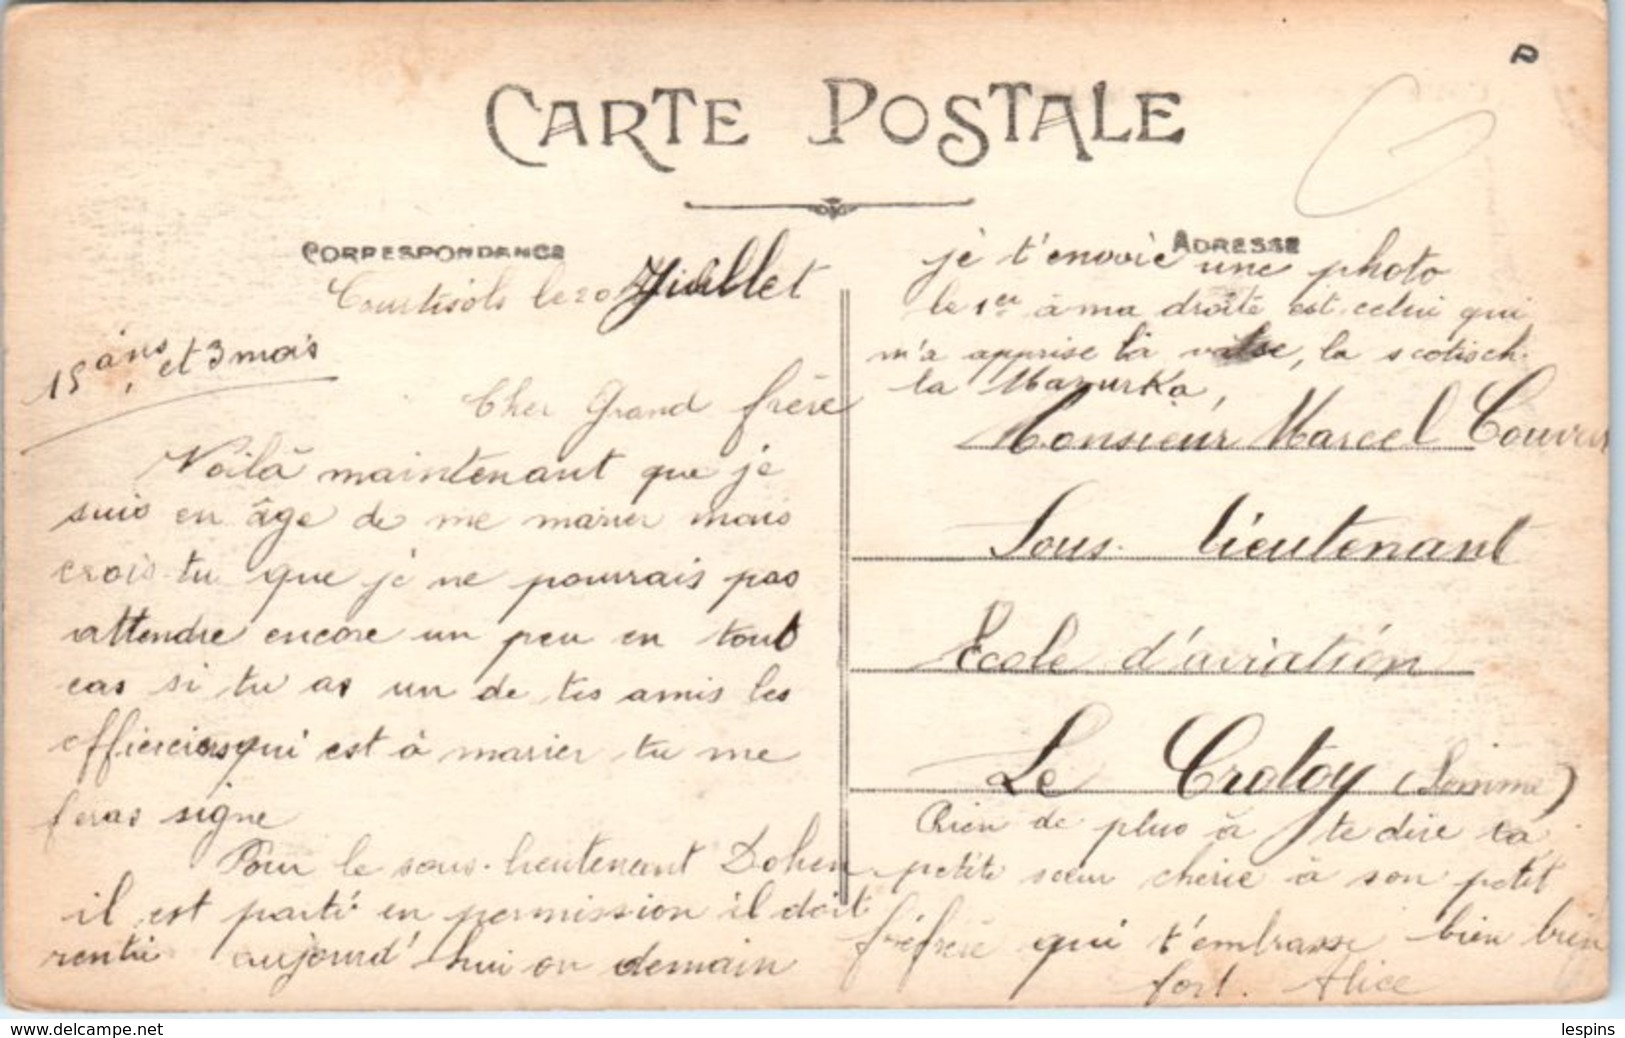 CARTE POSTALE
CORRESPONDANCE
Courtisols le 20 Juillet
15 ans et 3 mois
Cher Grand frère
Voilà maintenant que je
suis en âge de me marier mais
crois-tu que je ne pourrais pas
attendre encore un peu en tout
cas si tu as un de tes amis les
qui est à marier tu me
feras signe
Pour le sous-lieutenant Dohen
il est parti en permission il doit
rentré aujourd'hui ou demain
ADRESSE
je t'enovie une photo
le 1er à ma droite est celui qui
m'a apprise la valse, la scotisch
la Mazurka,
Monsieur Marcel
Sous-lieutenant
Ecole d'aviation
Le Crotoy (Somme)
Rien de plus à te dire ta
petite sœur chérie à son petit
fréfrère qui t'embrasse bien bien
fort. Alice
www.delcampe.net
lespins